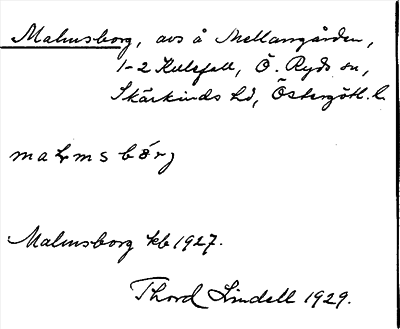 Malmsborg, avs å Mellangården,
1-2 Kulsfall, Ö. Ryds sn,
Skärkinds hd, Östergötl. l.
malmsbårj
Malmsborg kb 1927.
Thord Lindell 1929.